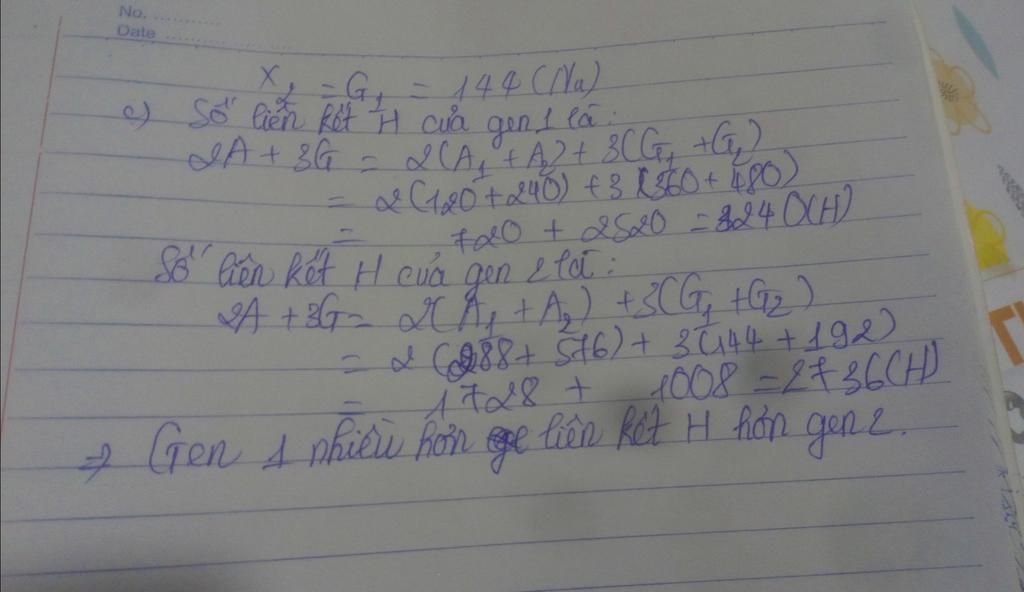 No. ............
Date ........................
X₂ = G₁ = 144 (Nu)
c) Số liên kết H của gen 1 là:
2A + 3G = 2(A₁ + A₂) + 3(G₁ + G₂)
= 2(120 + 240) + 3(360 + 480)
= 720 + 2520 = 3240(H)
Số liên kết H của gen 2 là:
2A + 3G = 2(A₁ + A₂) + 3(G₁ + G₂)
= 2(288 + 576) + 3(144 + 192)
= 1728 + 1008 = 2736(H)
⇒ Gen 1 nhiều hơn liên kết H hơn gen 2.